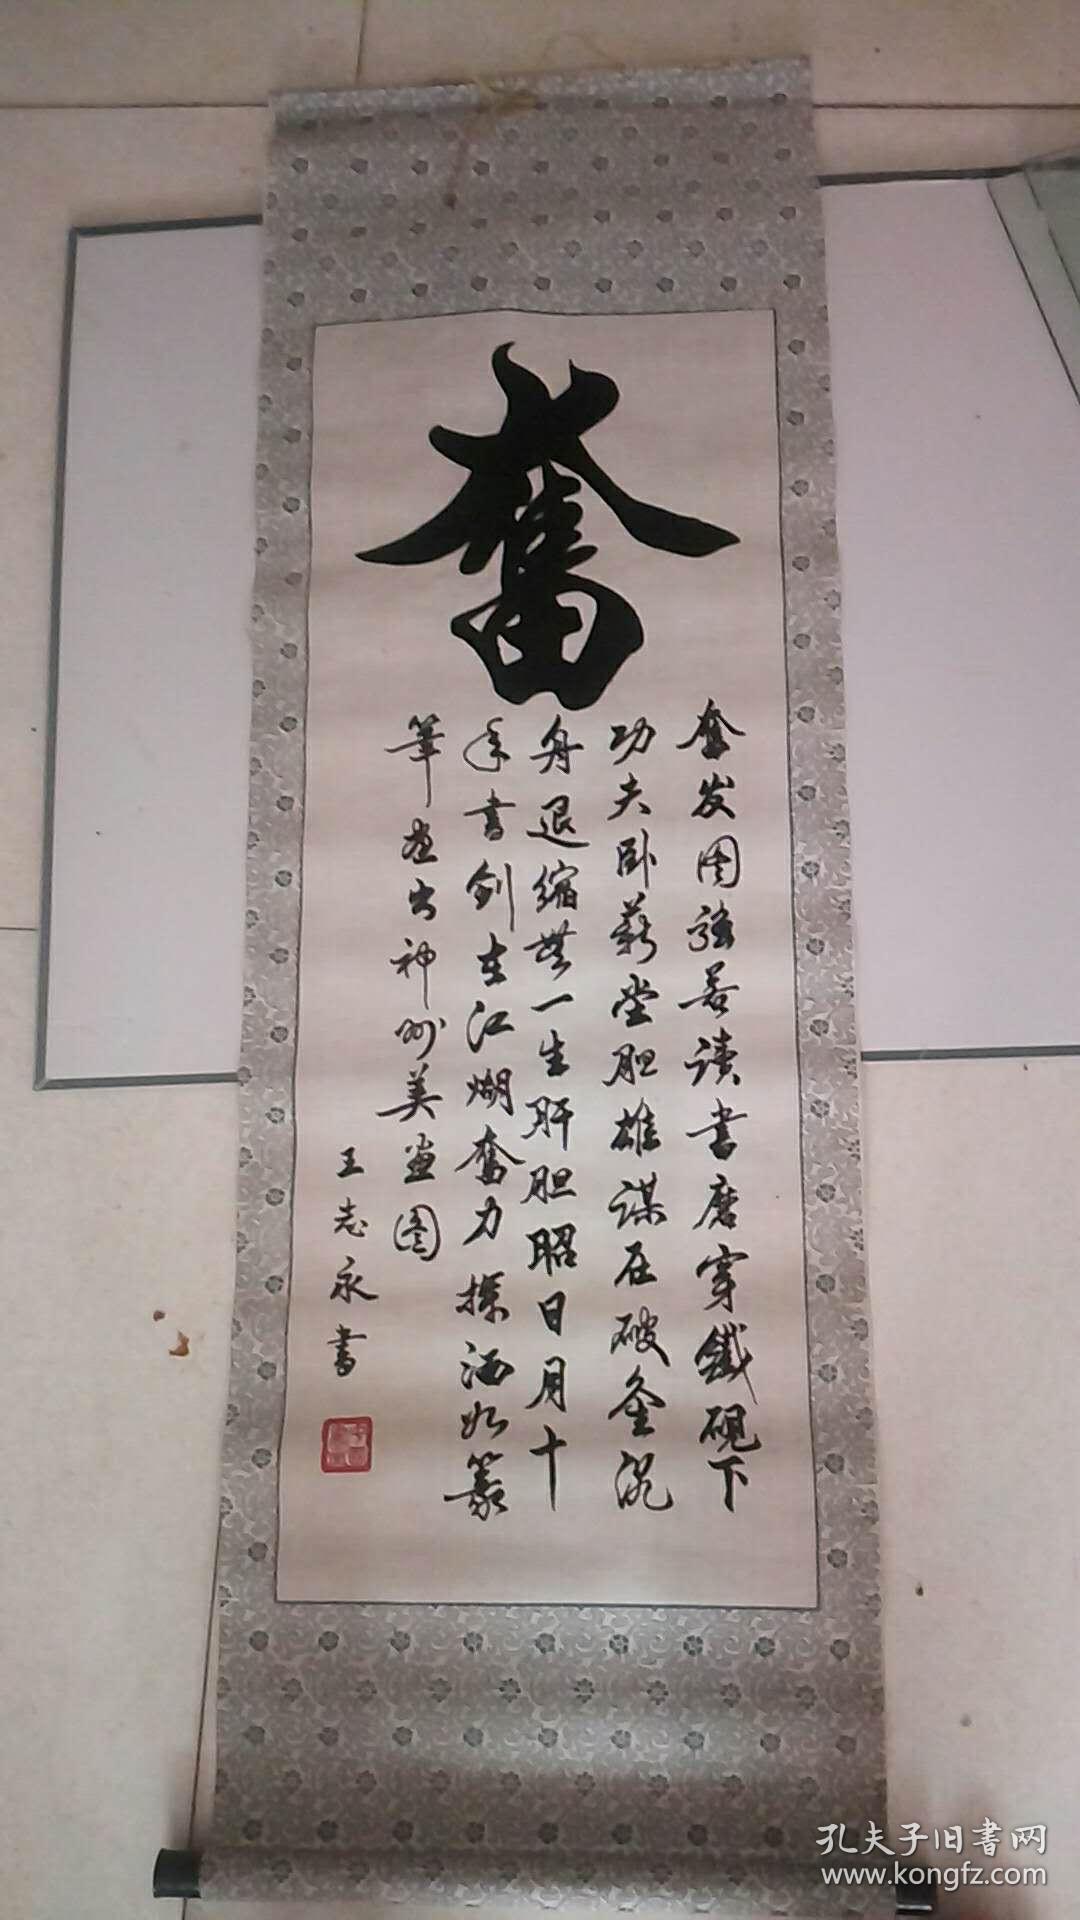 奮
奋发图强善读书磨穿鐵砚下
功夫卧薪尝胆雄谋在破釜沉
舟退缩無一生肝胆昭日月十
年書剑在江湖奮力操洒如篆
筆画出神州美画图
王志永書
孔夫子旧書网
www.kongfz.com